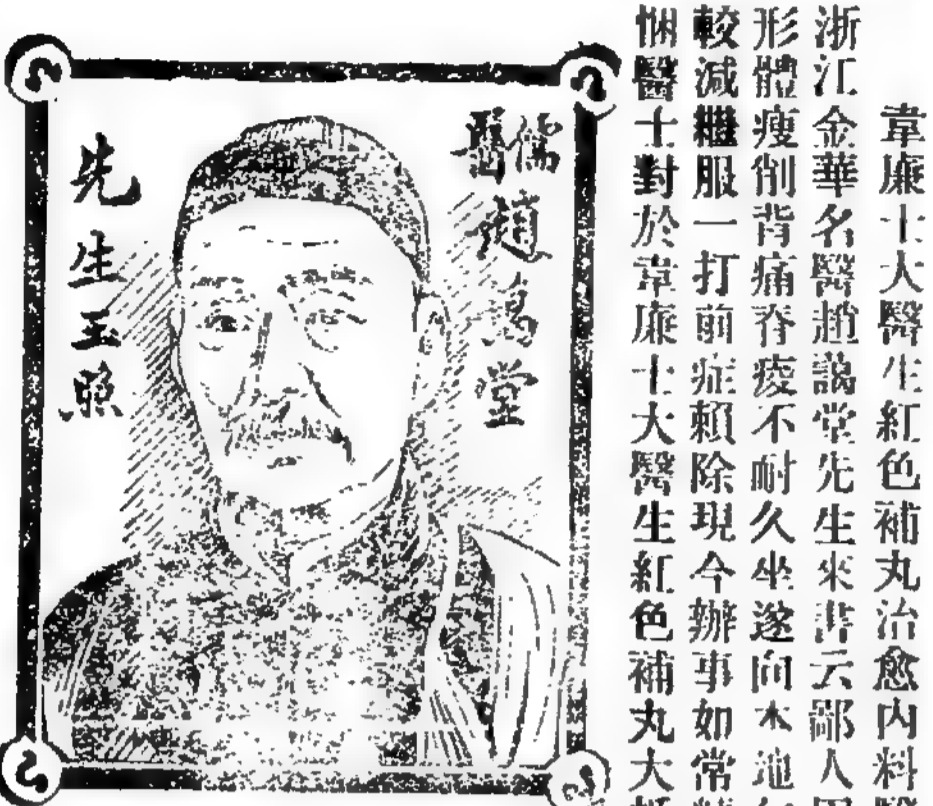 韋廉士大醫生紅色補丸治愈內科醫
浙江金華名醫趙謁堂先生來書云鄙人因
形體瘦削背痛脊痠不耐久坐遂向本地
較減繼服一打前症賴除現今辦事如常
悃醫士對於韋廉士大醫生紅色補丸大
儒醫趙謁堂
先生玉照